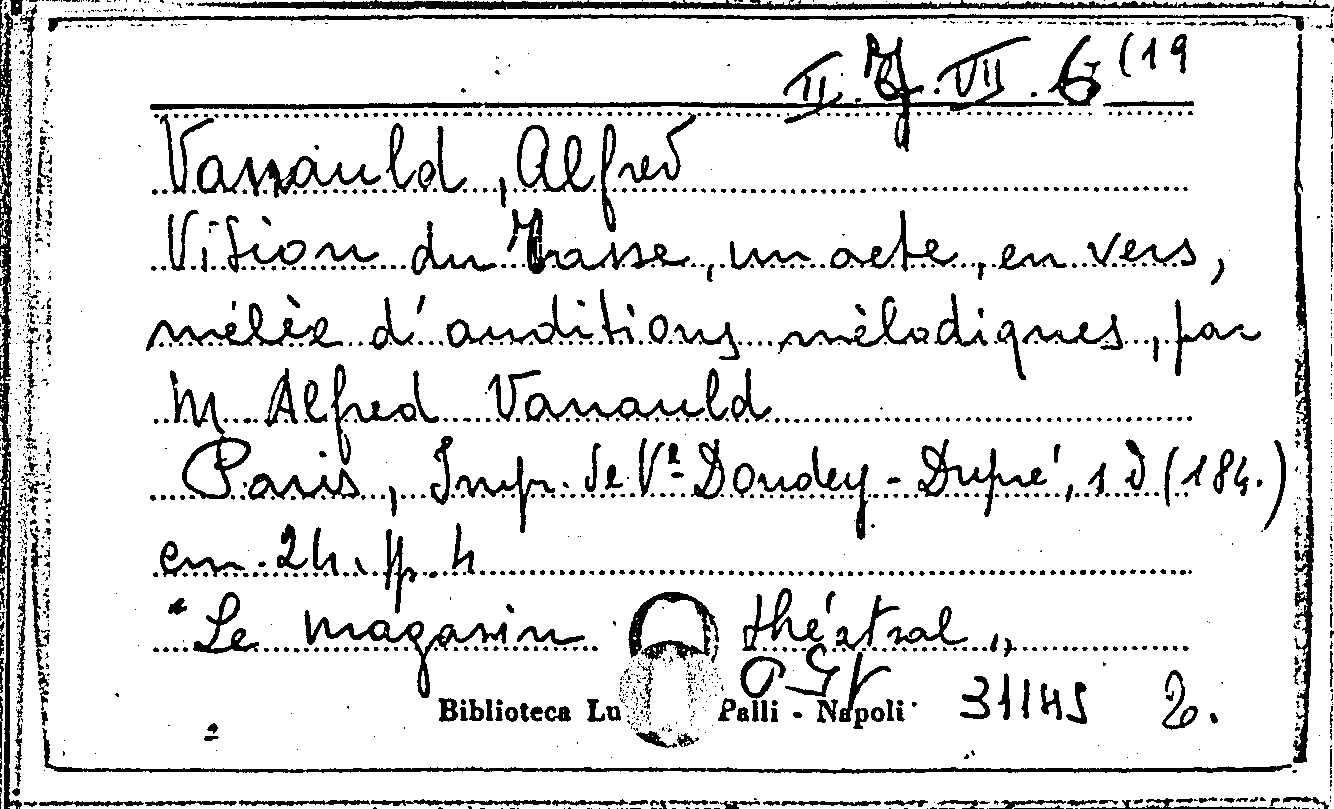 II. Z. VII. 6 (19
Vanauld, Alfred
Vision du Tasse, un acte, en vers,
mélèe d'auditions mèlodiques, par
M Alfred Vanauld
Paris, Impr. de Vᵉ Dondey-Dupré, s d (184.)
cm. 24. pp. 4
"Le magasin théatral„
Biblioteca Lu Palli - Napoli
31145